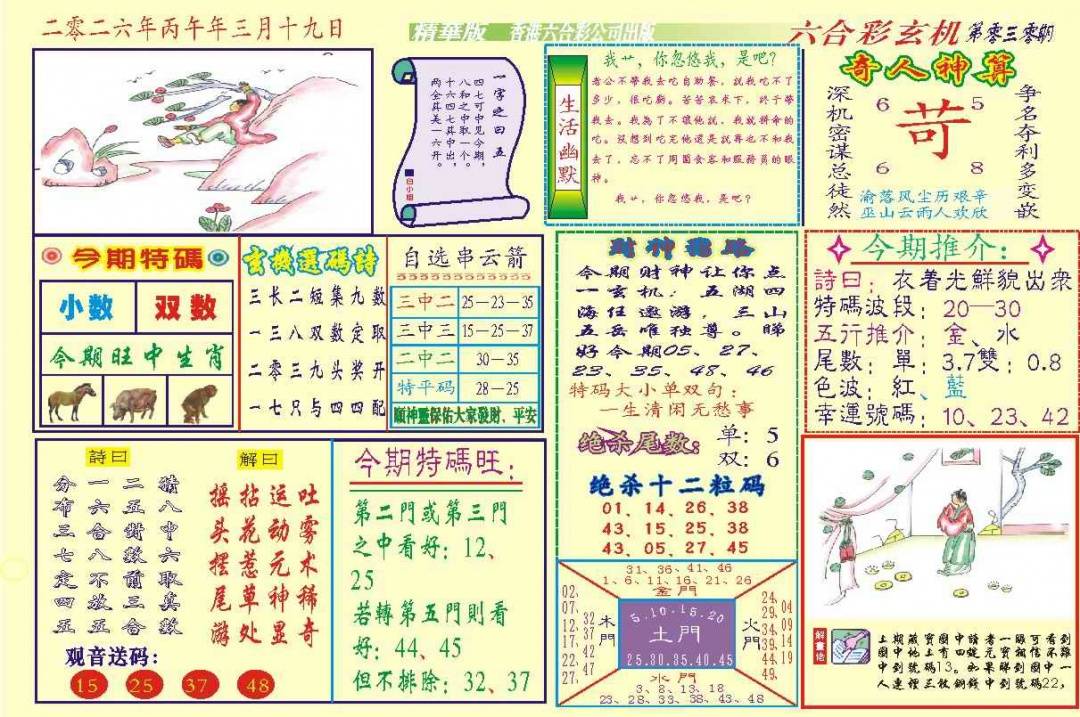 二零二六年丙午年三月十九日
精華版 香港六合彩公司出版
六合彩玄机 第零三零期
一字之曰五
四七可中见今期，
八和之中取一个。
十六四七其中出，
两全其美一六开。
白小姐
生活幽默
我艹，你忽悠我，是吧？
老公不帶我去吃自助餐，說我吃不了
多少，很吃虧。苦苦哀求下，終于帶
我去。我為了不讓他說，我就拼命的
吃。沒想到吃完他還是說再也不和我
去了，忘不了周圍食客和服務員的眼
神。
我艹，你忽悠我，是吧？
奇人神算
深机密谋总徒然
争名夺利多变嵌
6 5
苛
6 8
渝落风尘历艰辛
巫山云雨人欢欣
今期特碼
小数 双数
今期旺中生肖
玄機選碼詩
三长二短集九数
一三八双数定取
二零三九头奖开
一七只与四四配
自选串云箭
三中二 25－23－35
三中三 15－25－37
二中二 30－35
特平码 28－25
順神靈保佑大家發財、平安
財神指路
今期财神让你点
一玄机：五湖四
海任遨游，三山
五岳唯独尊。睇
好今期05、27、
23、35、48、46
特码大小单双句：
一生清闲无愁事
绝杀尾数：
单：5
双：6
绝杀十二粒码
01、14、26、38
43、15、25、38
43、05、27、45
今期推介：
詩曰：衣着光鮮貌出衆
特碼波段：20—30
五行推介：金、水
尾數：單：3.7雙：0.8
色波：紅、藍
幸運號碼：10、23、42
詩曰
猜八中六取真數
二五對數前三合
一六合八不放五
分布三七定四五
解曰
吐雾术稀奇
运动元神显
拈花惹草处
摇头摆尾游
观音送码：
15 25 37 48
今期特碼旺：
第二門或第三門
之中看好：12、
25
若轉第五門則看
好：44、45
但不排除：32、37
31、36、41、46
1、6、11、16、21、26
金門
02、07、12、17、22、27、
32、37、42、47
木門
5.10.15.20
土門
25.30.35.40.45
火門
24、29、34、39、44、49、
04、09、14、19
水門
3、8、13、18
23、28、33、38、43、48
解畫佬
上期藏寶圖中讀者一眼可看到
圖中地上有四錠元寶相信不難
中到號碼13。如果睇到圖中一
人連裡三枚銅錢中到號碼22，